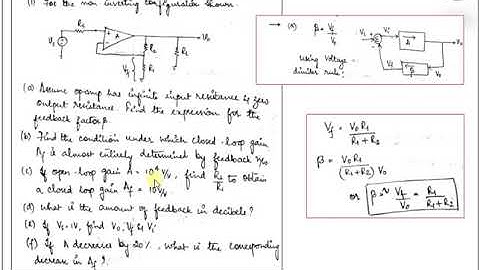 (1) For the non inverting configuration shown
Rs
A
Vo
Vs
R2
RL
Vf
R1
(a) Assume opamp has infinite input resistance & zero
output resistance. Find the expression for the
feedback factor β.
(b) Find the condition under which closed-loop gain
Af is almost entirely determined by feedback
(c) If open-loop gain A = 10⁴ V/V, find R2/R1 to obtain
a closed loop gain Af = 10 V/V
(d) What is the amount of feedback in decibels?
(e) If Vs = 1V, find Vo, Vf & Vi
(f) If A decreases by 20%, what is the corresponding
decrease in Af?
→ (a) β = Vf/Vo
Vs
Vi
A
Vo
Vf
β
Using Voltage
divider rule:
Vf = Vo R1/(R1+R2)
β = Vo R1/(R1+R2) Vo
or β = Vf/Vo = R1/(R1+R2)